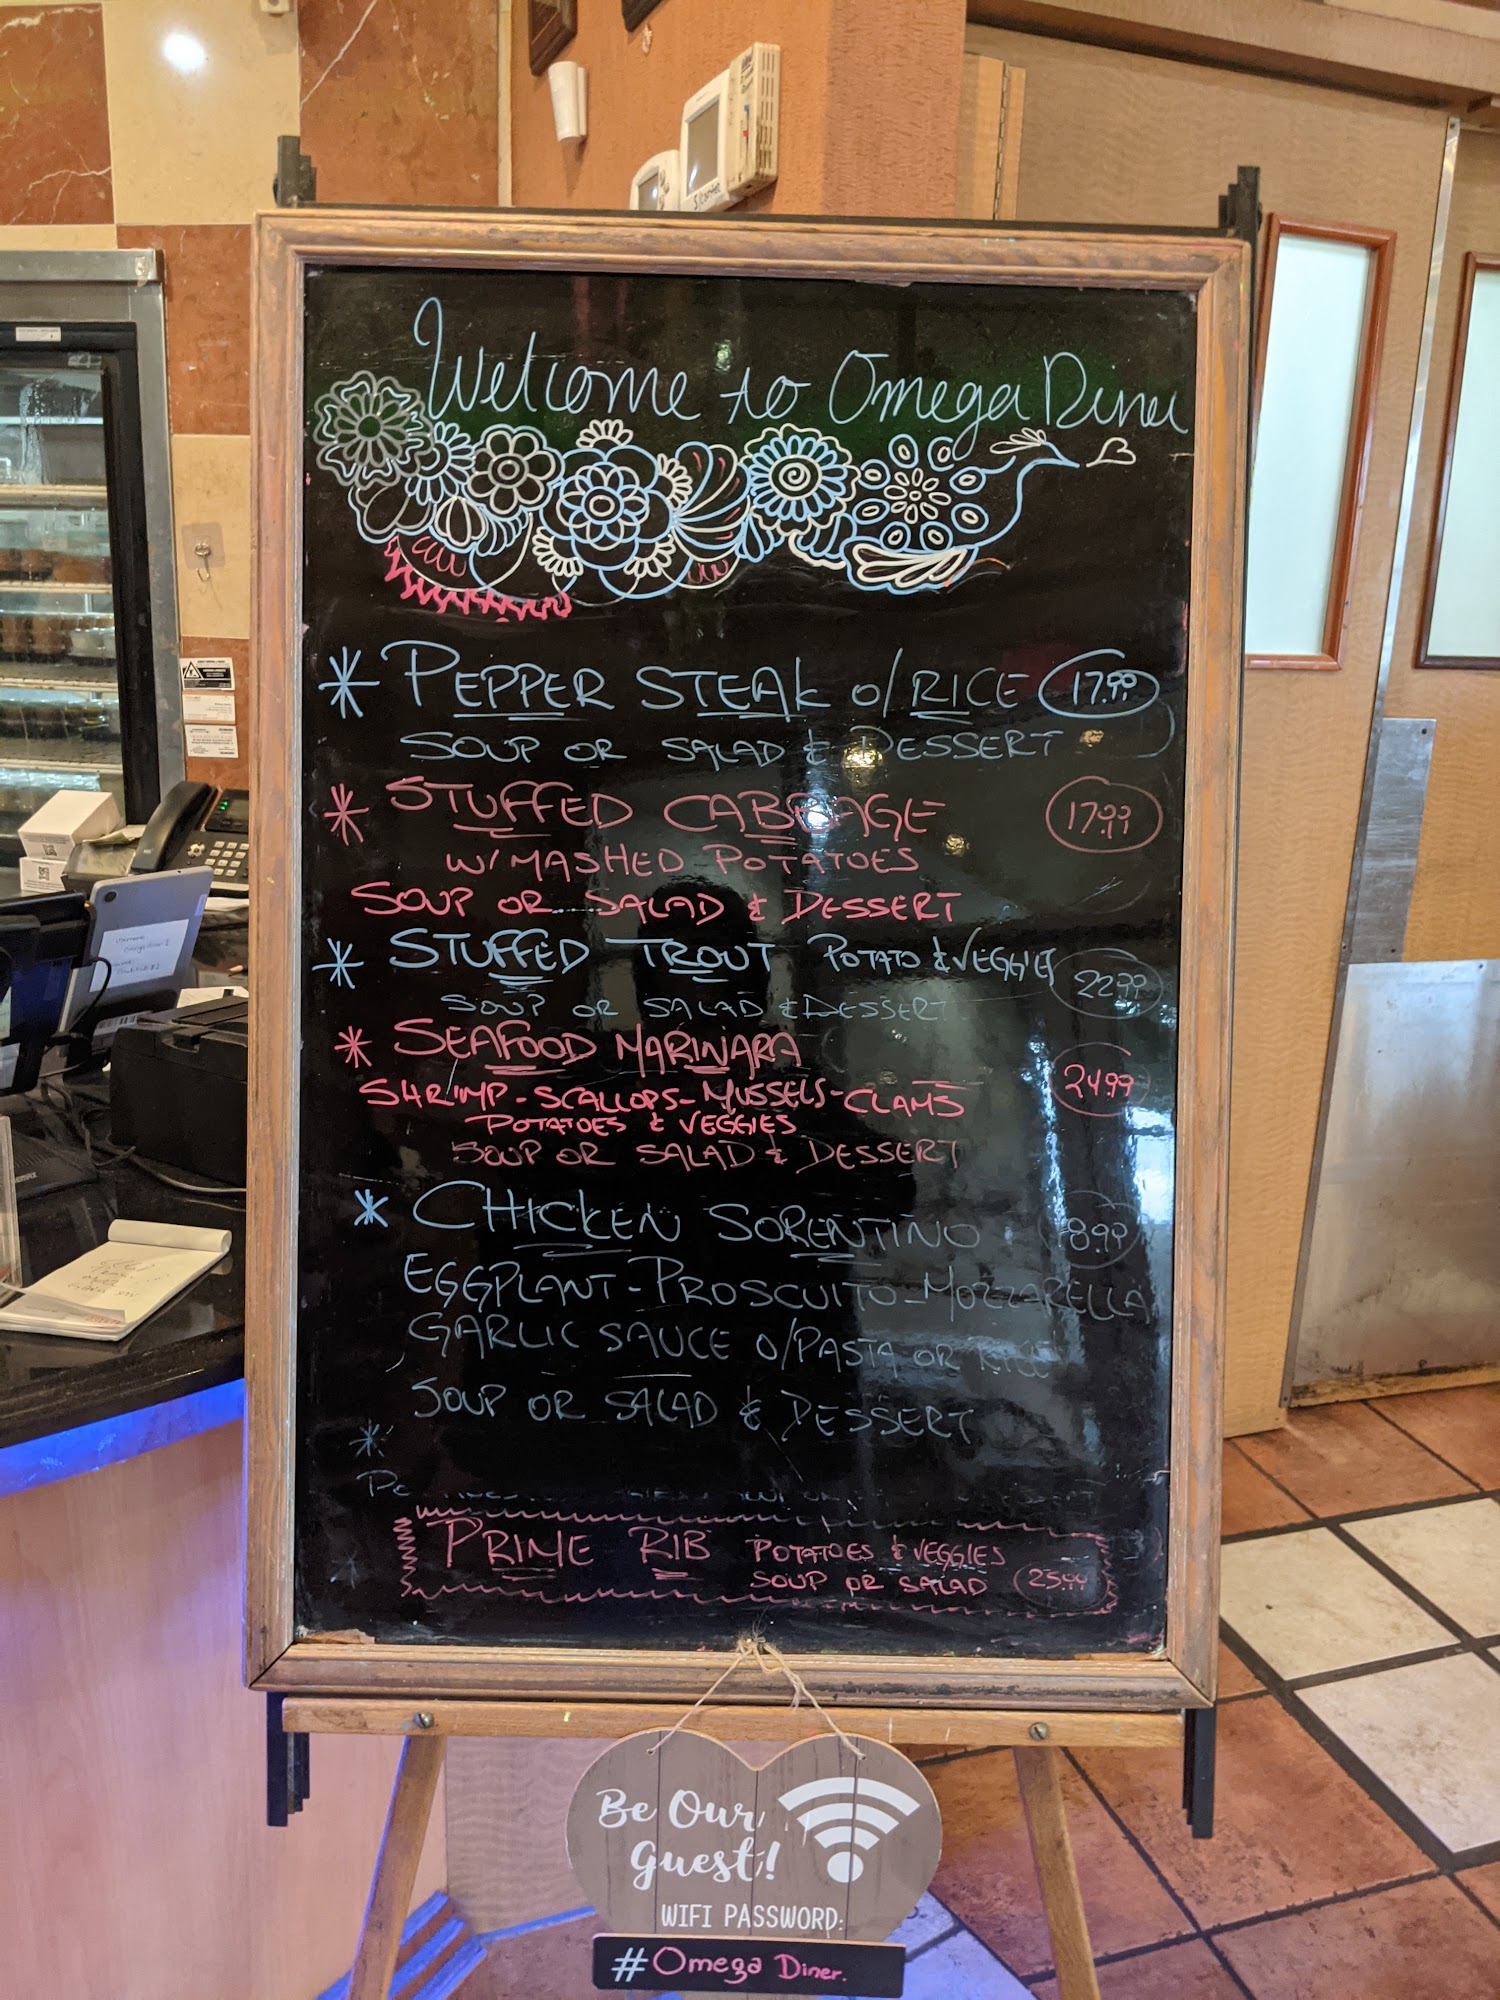 Welcome to Omega Diner
* PEPPER STEAK o/RICE 17.99
SOUP OR SALAD & DESSERT
* STUFFED CABBAGE 17.99
W/ MASHED POTATOES
SOUP OR SALAD & DESSERT
* STUFFED TROUT POTATO & VEGGIES 22.99
SOUP OR SALAD & DESSERT
* SEAFOOD MARINARA 24.99
SHRIMP - SCALLOPS - MUSSELS - CLAMS
POTATOES & VEGGIES
SOUP OR SALAD & DESSERT
* CHICKEN SORENTINO
EGGPLANT - PROSCUITO - MOZZARELLA
GARLIC SAUCE O/PASTA OR
SOUP OR SALAD & DESSERT
*
PRIME RIB POTATOES & VEGGIES
SOUP OR SALAD 25.99
Be Our
Guest!
WIFI PASSWORD:
#Omega Diner.